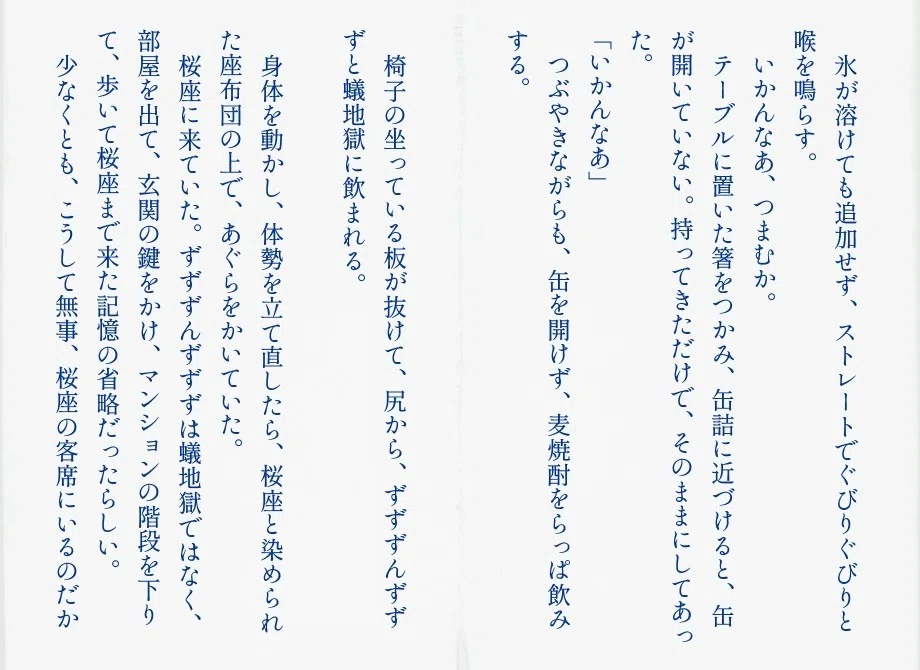 氷が溶けても追加せず、ストレートでぐびりぐびりと
喉を鳴らす。
いかんなあ、つまむか。
テーブルに置いた箸をつかみ、缶詰に近づけると、缶
が開いていない。持ってきただけで、そのままにしてあっ
た。
「いかんなあ」
つぶやきながらも、缶を開けず、麦焼酎をらっぱ飲み
する。
椅子の坐っている板が抜けて、尻から、ずずずんずず
ずと蟻地獄に飲まれる。
身体を動かし、体勢を立て直したら、桜座と染められ
た座布団の上で、あぐらをかいていた。
桜座に来ていた。ずずずんずずずは蟻地獄ではなく、
部屋を出て、玄関の鍵をかけ、マンションの階段を下り
て、歩いて桜座まで来た記憶の省略だったらしい。
少なくとも、こうして無事、桜座の客席にいるのだか